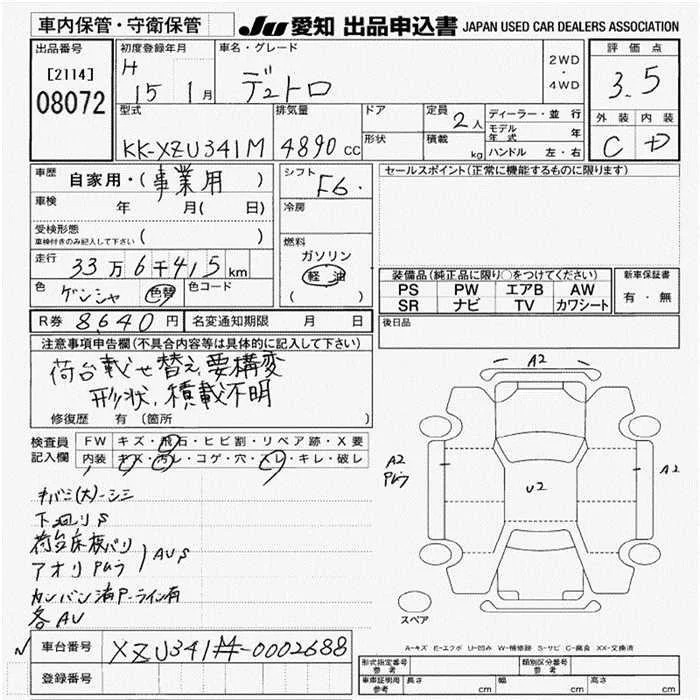 車内保管・守衛保管
JU 愛知 出品申込書 JAPAN USED CAR DEALERS ASSOCIATION
出品番号
[2114]
08072
初度登録年月
H
15 1月
車名・グレード
デュトロ
2WD
・
4WD
評価点
3.5
外装 内装
C D
型式
KK-XZU341M
排気量
4890 cc
ドア
形状
定員
2人
積載
kg
ディーラー・並行
モデル年式 年
ハンドル 左・右
車歴
自家用・(事業用)
車検 年 月( 日)
受検形態
車検付きのみ記入して下さい ( )
走行
33万6千415km
色
ゲンシャ 色替
色コード
シフト
F6.
冷房
燃料
ガソリン
軽油
( )
セールスポイント(正常に機能するものに限ります)
装備品(純正品に限り○をつけてください)
PS PW エアB AW
SR ナビ TV カワシート
新車保証書
有・無
R券 8,640円
名変通知期限 月 日
後日品
注意事項申告欄(不具合内容等は具体的に記入して下さい)
荷台載せ替え要構変
形状、積載不明
修復歴 有 (箇所 )
検査員記入欄
FW キズ・飛石・ヒビ割・リペア跡・X要
内装 キズ・汚レ・コゲ・穴・スレ・キレ・破レ
キバミ(大)-シミ
下回りS
荷台床板バリ
アオリPムラ
AUS
カンバン消P-ライン有
各AU
A2
A2
Pムラ
U2
A2
スペア
A-キズ E-エクボ U-凹み W-補修跡 S-サビ C-腐食 XX-交換済
車台番号
XZU341-0002688
登録番号
形式指定番号
参考
類別区分番号
参考
車庫証明用
参考
長さ cm 幅 cm 高さ cm